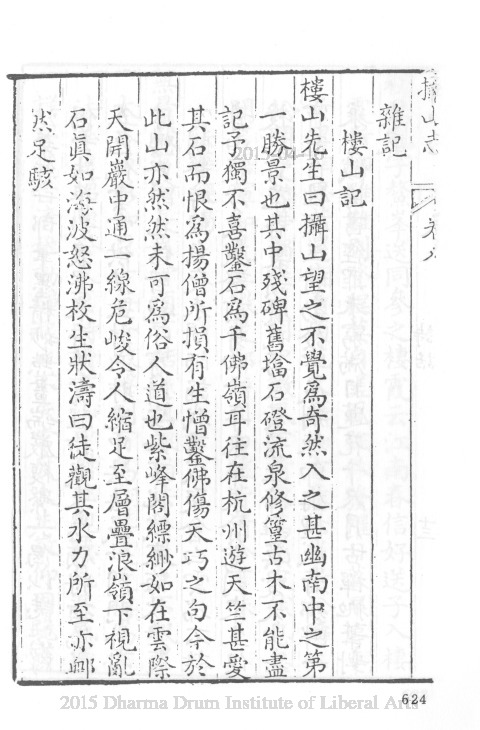 攝山志
雜記
樓山記
樓山先生曰攝山望之不覺爲奇然入之甚幽南中之第
一勝景也其中殘碑舊墖石磴流泉修篁古木不能盡
記予獨不喜鑿石爲千佛嶺耳往在杭州遊天竺甚愛
其石而恨爲揚僧所損有生憎鑿佛傷天巧之句今於
此山亦然然未可爲俗人道也紫峰閣縹緲如在雲際
天開巖中通一線危峻令人縮足至層疊浪嶺下視亂
石眞如海波怒沸枚生狀濤曰徒觀其水力所至亦䘏
然足駭
624
2015 Dharma Drum Institute of Liberal Arts